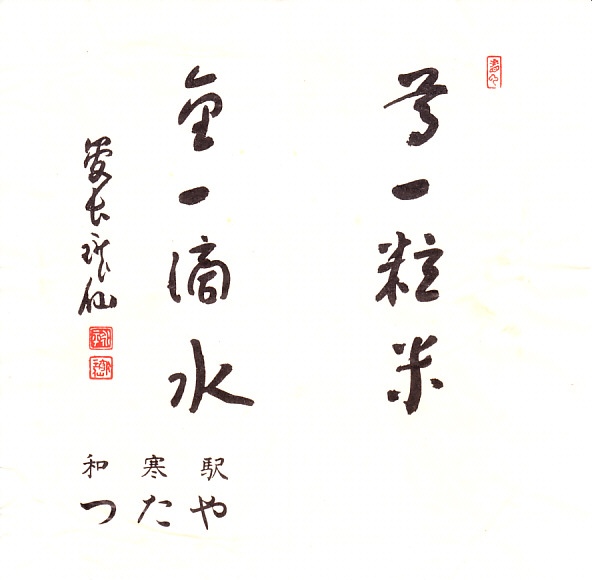 尊一粒米
重一滴水
和寒駅
つたや